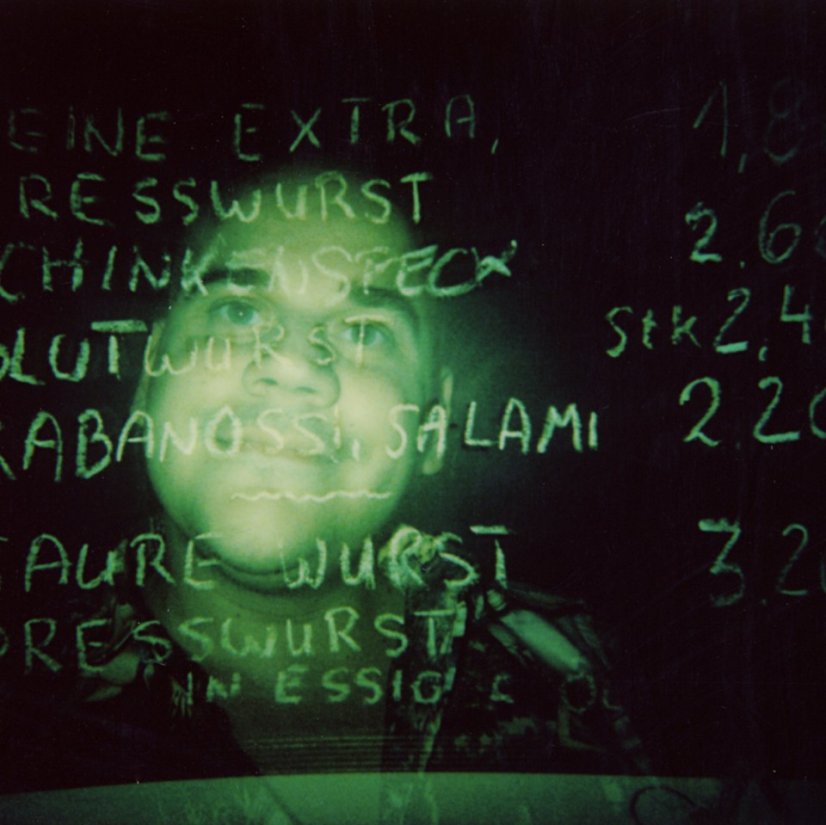 EINE EXTRA, 1,8
RESSWURST 2.60
CHINKENSPECK
BLUTWURST Stk 2,4
KABANOSSI, SALAMI 2.20
SAURE WURST 3.20
PRESSWURST
IN ESSIG & ÖL